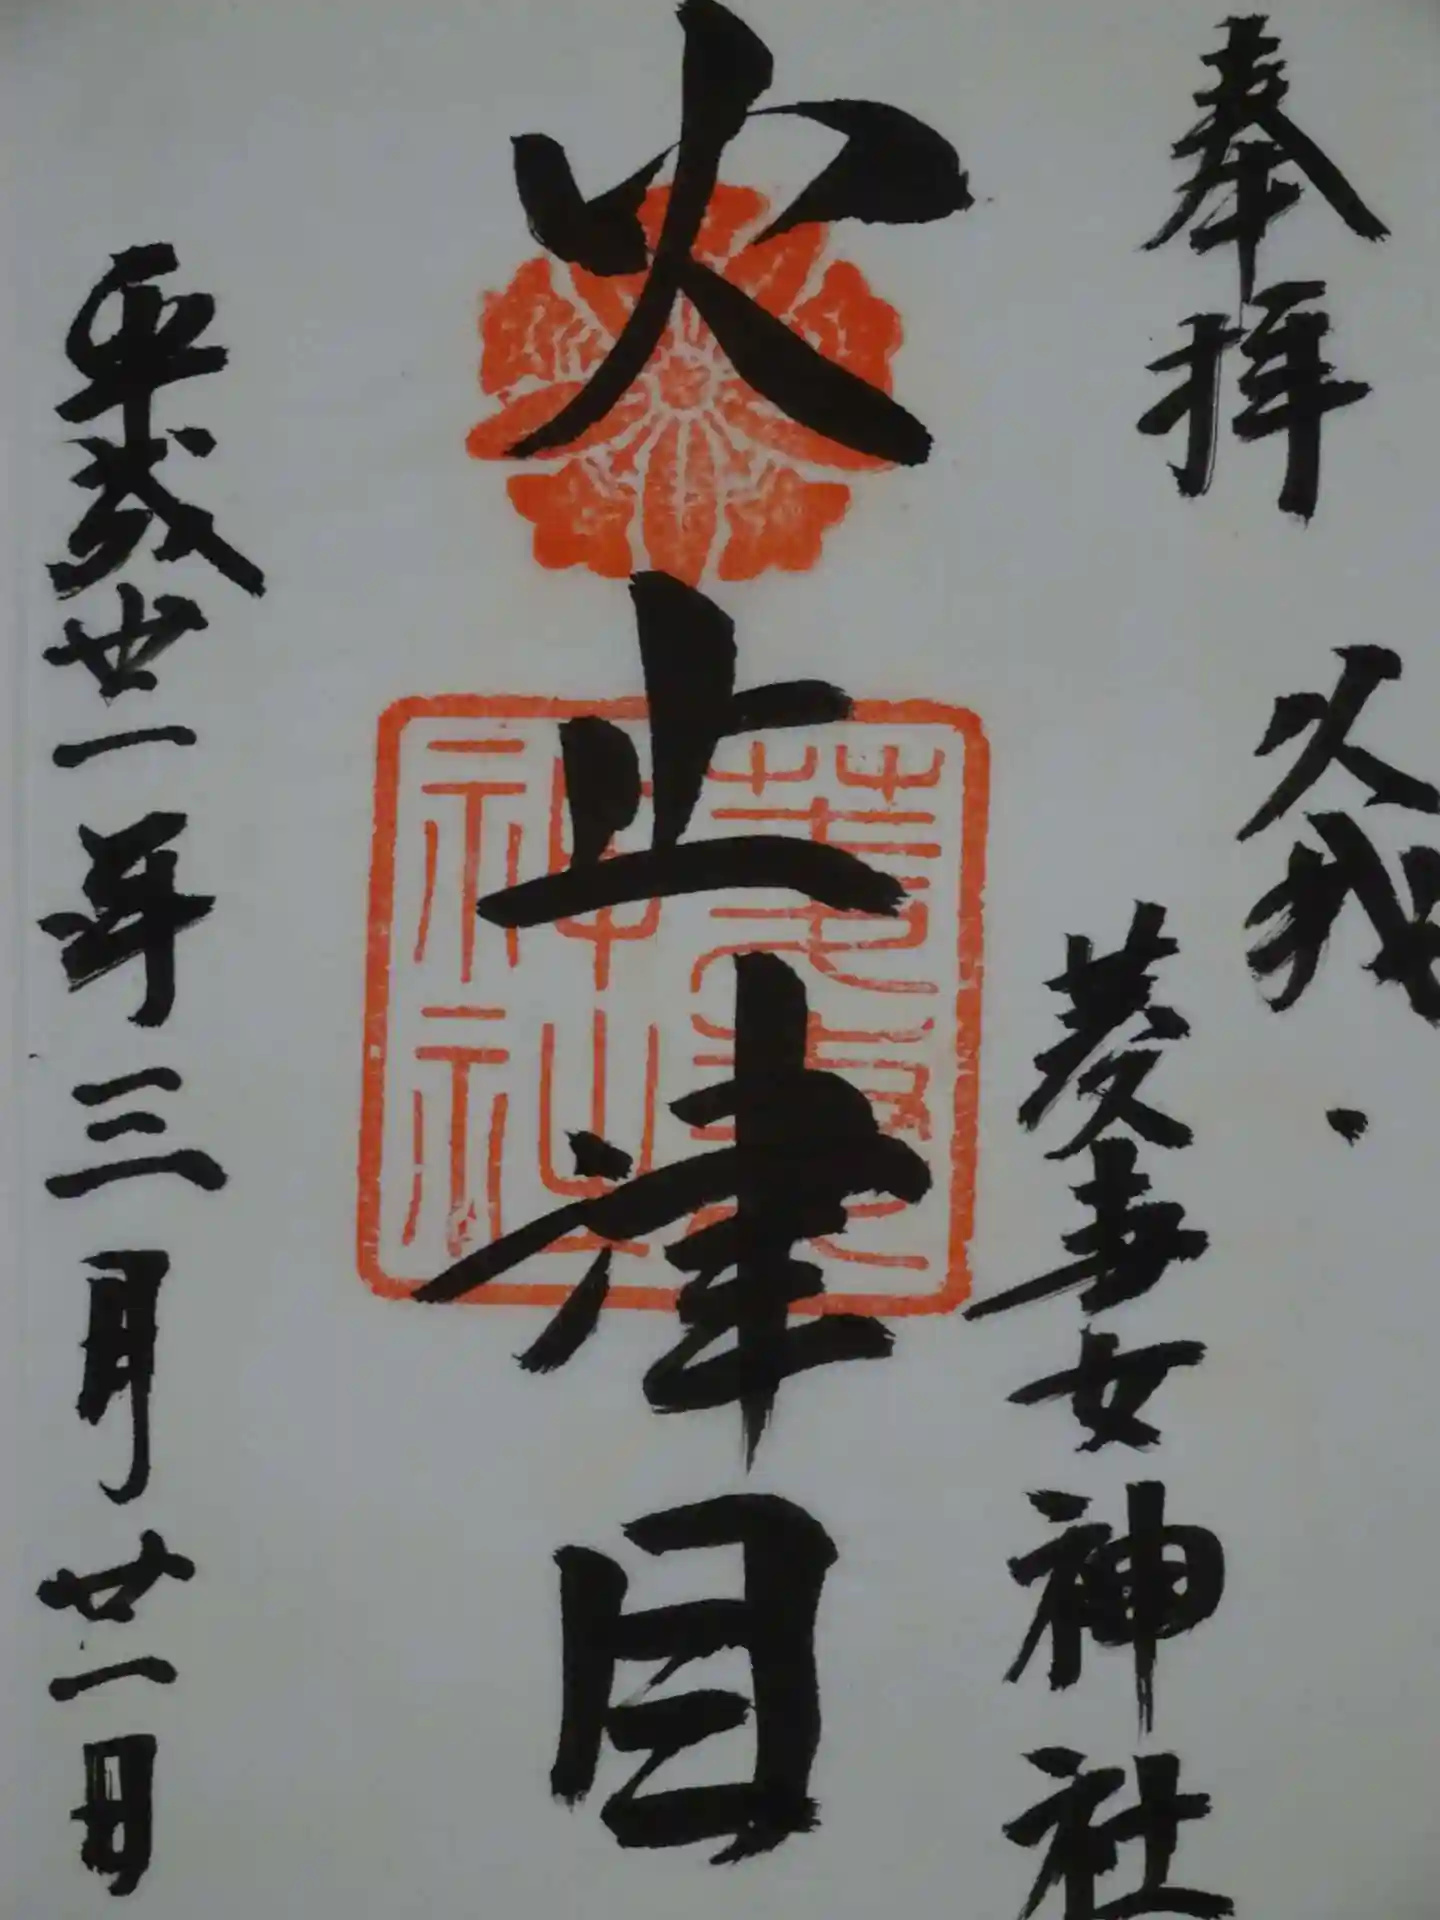 奉拝
久我・
菱妻女神社
火止津目
平成廿一年三月廿一日